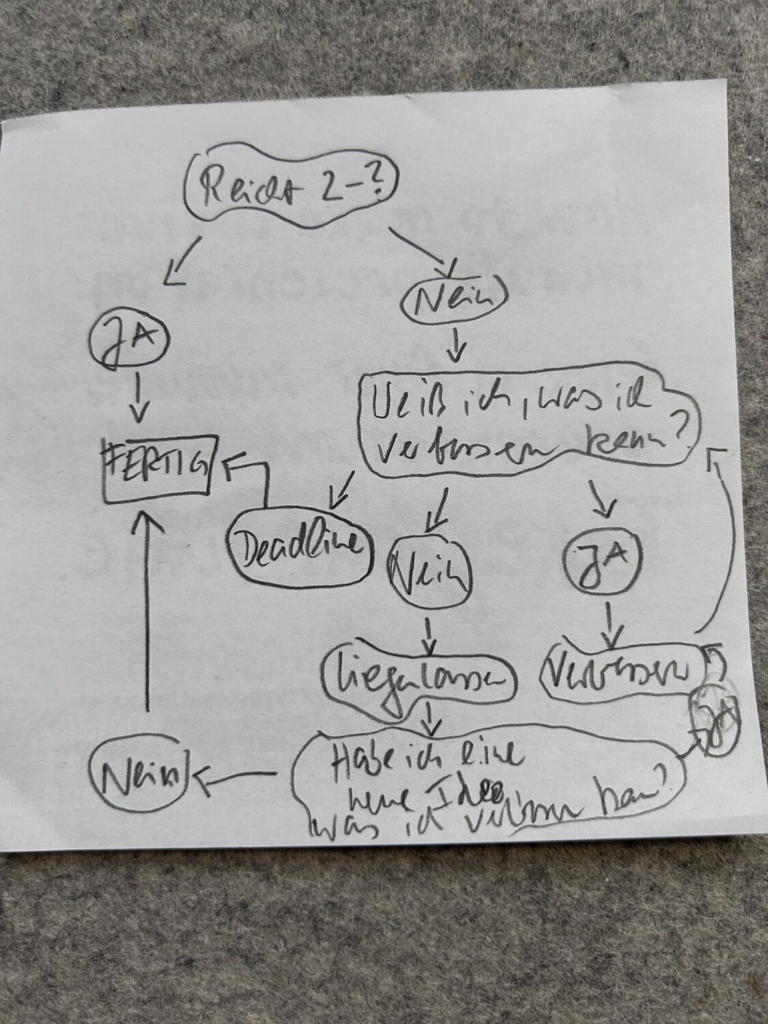 Reicht 2-?
Nein
JA
Weiß ich, was ich
verbessern kann?
FERTIG
Deadline
Nein
JA
liegenlassen
Verbessern
JA
Habe ich eine
neue Idee
was ich verbessern kann?
Nein